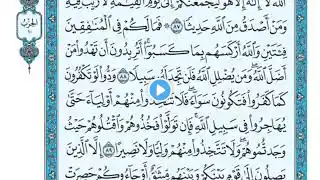 ٱللَّهُ لَآ إِلَٰهَ إِلَّا هُوَ لَيَجْمَعَنَّكُمْ إِلَىٰ يَوْمِ ٱلْقِيَٰمَةِ لَا رَيْبَ فِيهِ
وَمَنْ أَصْدَقُ مِنَ ٱللَّهِ حَدِيثًا ٨٧ فَمَا لَكُمْ فِي ٱلْمُنَٰفِقِينَ
فِئَتَيْنِ وَٱللَّهُ أَرْكَسَهُم بِمَا كَسَبُوٓا۟ أَتُرِيدُونَ أَن تَهْدُوا۟ مَنْ
أَضَلَّ ٱللَّهُ وَمَن يُضْلِلِ ٱللَّهُ فَلَن تَجِدَ لَهُۥ سَبِيلًا ٨٨ وَدُّوا۟ لَوْ تَكْفُرُونَ
كَمَا كَفَرُوا۟ فَتَكُونُونَ سَوَآءً فَلَا تَتَّخِذُوا۟ مِنْهُمْ أَوْلِيَآءَ حَتَّىٰ
يُهَاجِرُوا۟ فِي سَبِيلِ ٱللَّهِ فَإِن تَوَلَّوْا۟ فَخُذُوهُمْ وَٱقْتُلُوهُمْ حَيْثُ
وَجَدتُّمُوهُمْ وَلَا تَتَّخِذُوا۟ مِنْهُمْ وَلِيًّا وَلَا نَصِيرًا ٨٩ إِلَّا ٱلَّذِينَ
يَصِلُونَ إِلَىٰ قَوْمٍۭ بَيْنَكُمْ وَبَيْنَهُم مِّيثَٰقٌ أَوْ جَآءُوكُمْ حَصِرَتْ